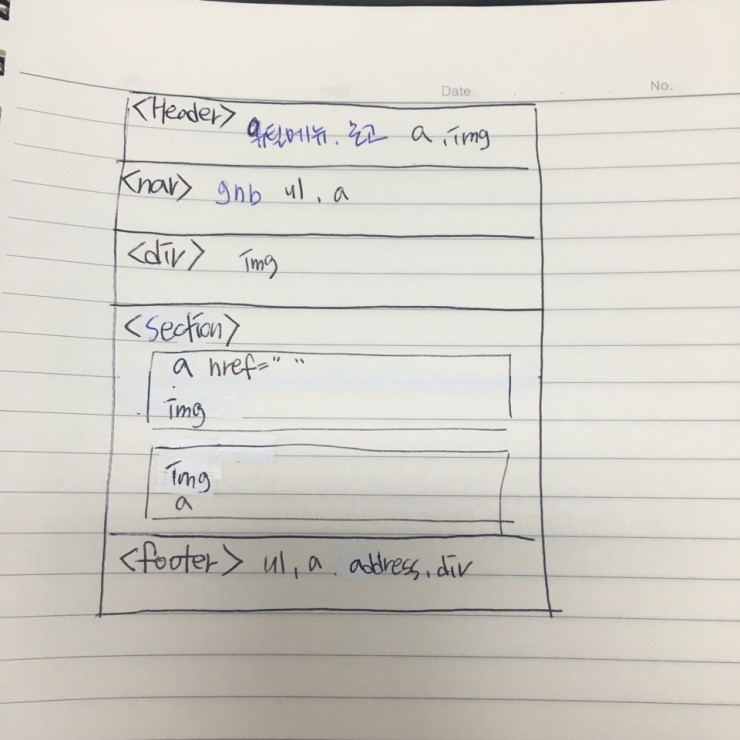 Date No.
<Header>
유틸메뉴. 로고 a, img
<nav> gnb ul, a
<div> img
<section>
a href=" "
img
img
a
<footer> ul, a. address, div